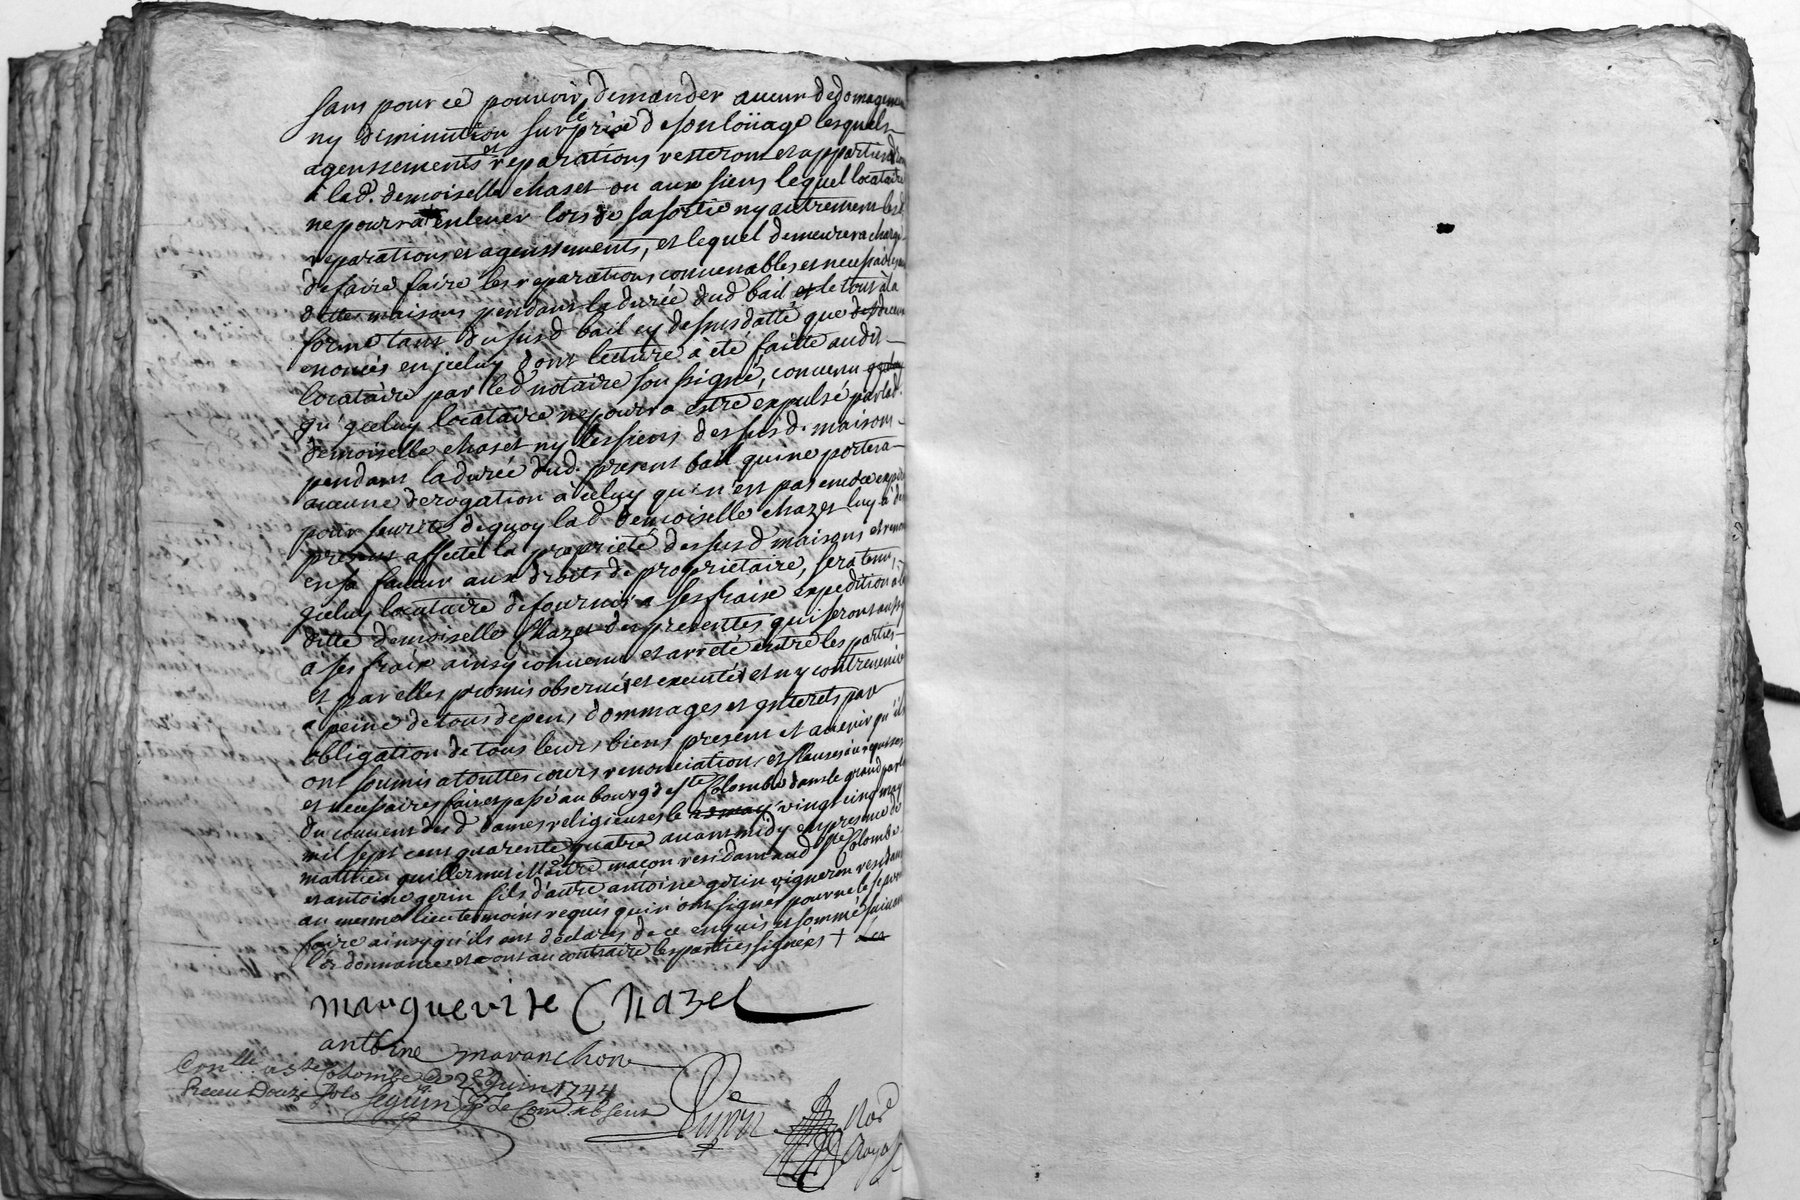 sans pour ce pouvoir demander aucun dedomagemen
ny diminution sur le prix de son loüage lesquels
agenssements et reparations resteront et appartiendron
a lad. demoiselle chazet ou aux siens lequel locataire
ne pourra enlever lors de sa sortie ny autrement les d
reparations et agenssements, et lequel demeurera charge
de faire faire les reparations convenables et necessaires
dittes maisons pendant la durée dud bail et le tout à la
forme tant du susd bail cy dessus datté que
enoncés en jceluy dont lecture à été faitte audit
locataire par led notaire soussigné, convenu
qu'jceluy locataire ne poura estre expulsé par lad.
demoiselle chazet ny les siens des susd. maisons
pendant la durée dud. present bail qui ne portera
aucune derogation à celuy qui n'est pas encore expiré
pour seureté de quoy lad. demoiselle chazet luy a des
present affecté la proprieté des susd maisons et renon
en sa faveur aux droits de proprietaire, sera tenu
jceluy locataire de fournir a ses fraix expedition a la
ditte demoiselle Chazet des presentes qui seront aussy
a ses fraix ainsy convenu et arreté entre les parties
et par elles promis observer et executer et n'y contrevenir
a peine de tous depens, dommages et jnterets par
obligation de tous leurs biens present et avenir qu'ils
ont soumis a touttes cours renonciations et clauses a ce requises
et necessaires fait et passé au bourg de Ste Colombe dans le grand parloi
du couvent des d dames religieuses le vingt cinq may
mil sept cent quarente quatre avant midy en presence de
mathieu guillermet Maitre maçon residant aud Ste Colombe
et antoine gerin fils d'autre antoine gerin vigneron residant
au mesme lieu temoins requis qui n'ont signés pour ne le scavoir
faire ainsy qu'ils ont declarés de ce enquis et sommés suivant
l'ordonnance et ont au contraire les parties signées +
marguerite Chazel
antoine maranchon
Con.lle a Ste Colombe le 2e Juin 1744
Receu Douze sols Seguin pr le Com absent
Not
Royal